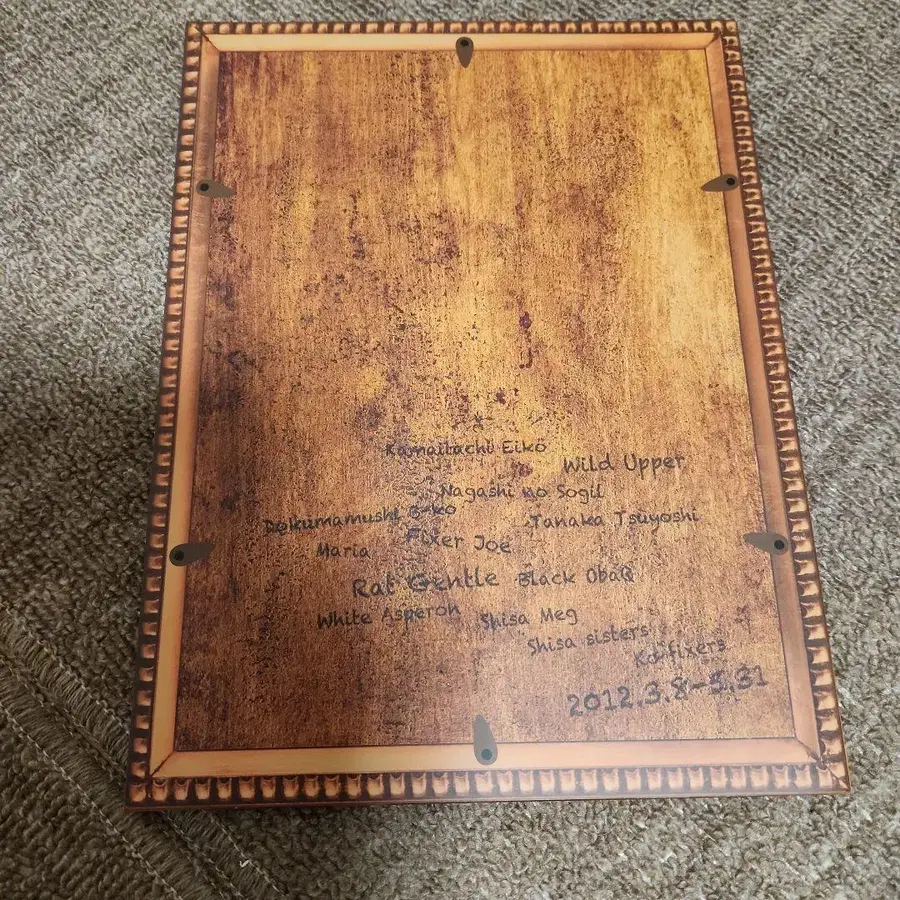 Kamaitachi Eiko
Wild Upper
Nagashi no Sogil
Dokumamushi G-ko
Tanaka Tsuyoshi
Fixer Joe
Maria
Rat Gentle
Black ObaQ
White Asperoh
Shisa Meg
Shisa sisters
Ko-fixers
2012.3.8-5.31